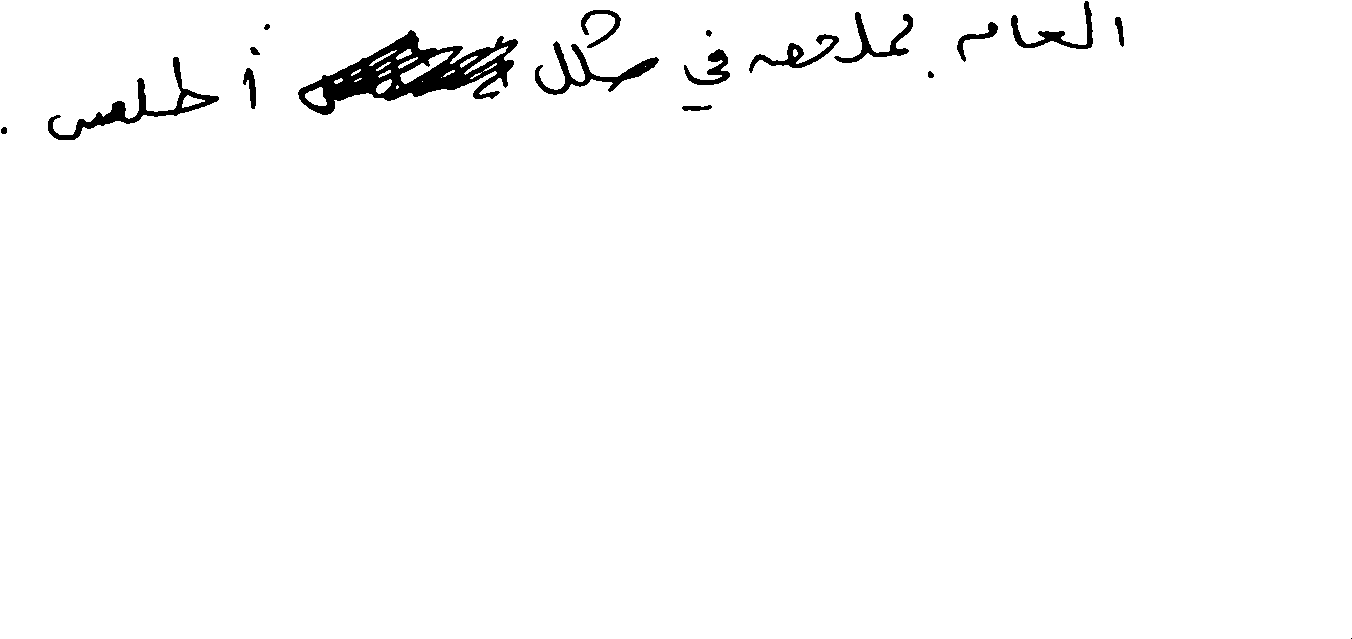 العام بملاحقه في شكل أطلس.